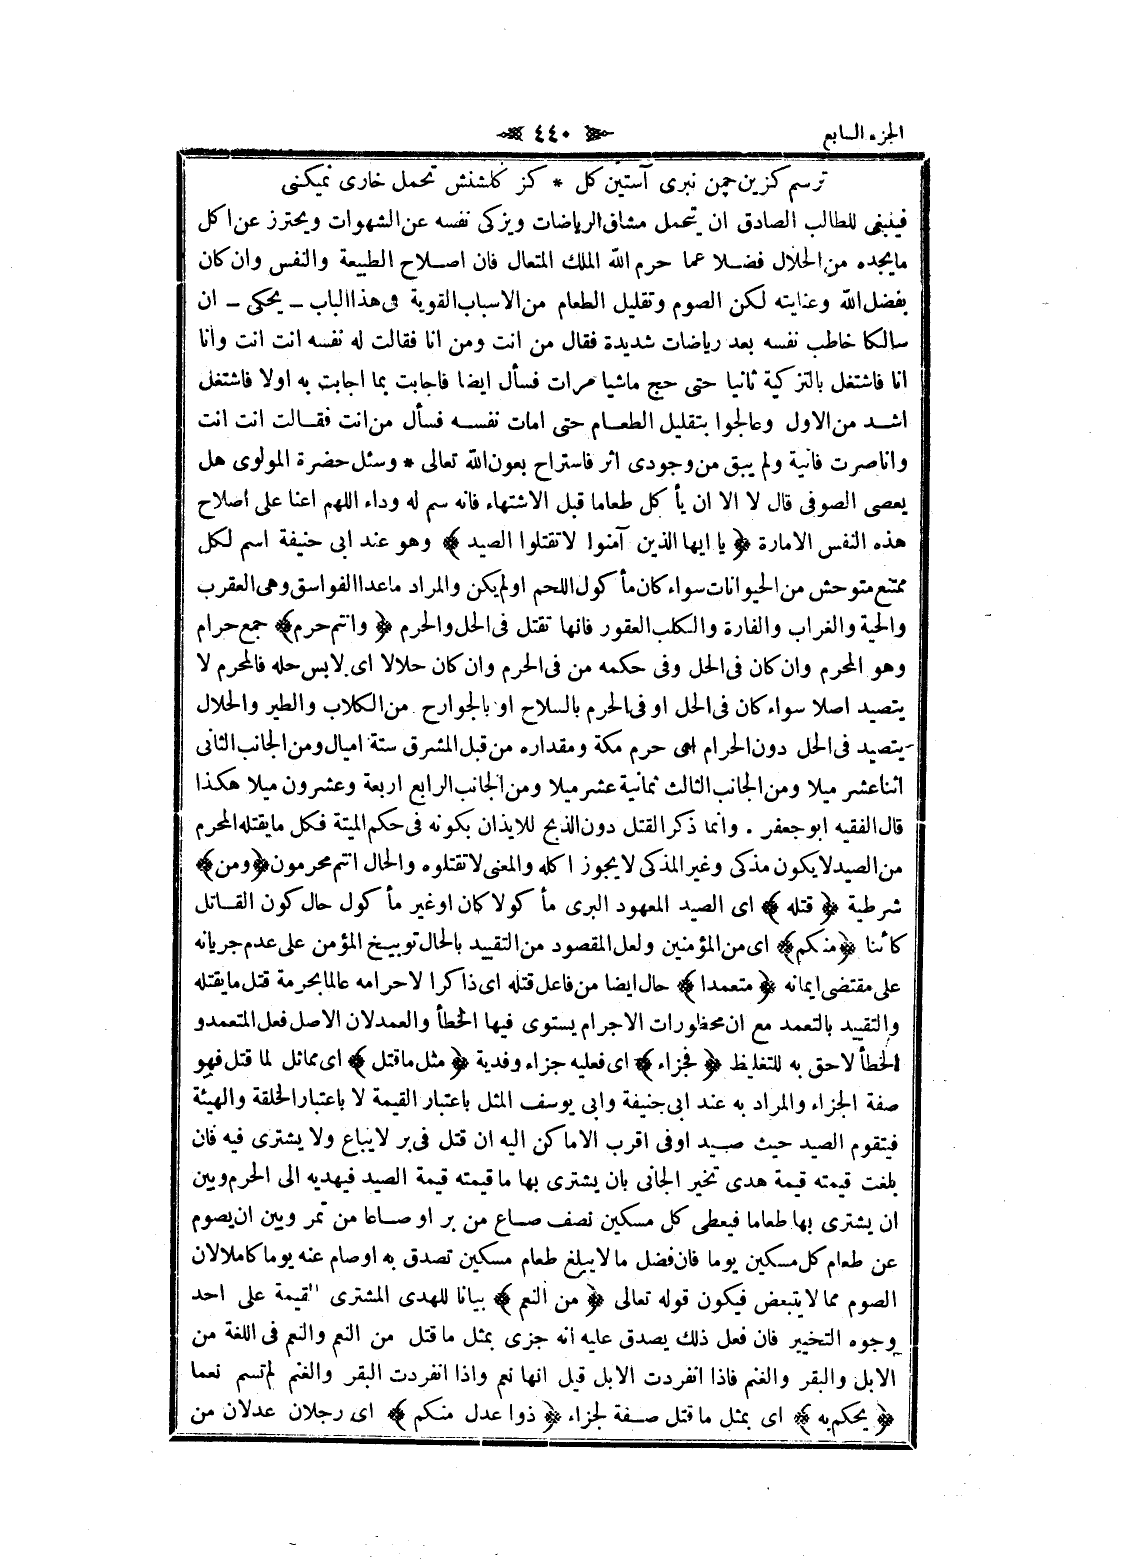 الجزء السابع
٤٤٠
ترسم كزين چمن نبرى آستين كل * كز كلشنش تحمل خارى نميكنى
فينبغى للطالب الصادق ان يتحمل مشاق الرياضات ويزكى نفسه عن الشهوات ويحترز عن اكل
مايجده من الحلال فضلا عما حرم الله الملك المتعال فان اصلاح الطبيعة والنفس وان كان
بفضل الله وعنايته لكن الصوم وتقليل الطعام من الاسباب القوية فى هذا الباب ـ يحكى ـ ان
سالكا خاطب نفسه بعد رياضات شديدة فقال من انت ومن انا فقالت له نفسه انت انت وانا
انا فاشتغل بالتزكية ثانيا حتى حج ماشيا مرات فسأل ايضا فاجابت بما اجابت به اولا فاشتغل
اشد من الاول وعالجوا بتقليل الطعام حتى امات نفسه فسأل من انت فقالت انت انت
واناصرت فانية ولم يبق من وجودى اثر فاستراح بعون الله تعالى * وسئل حضرة المولوى هل
يعصى الصوفى قال لا الا ان يأكل طعاما قبل الاشتهاء فانه سم له وداء اللهم اعنا على اصلاح
هذه النفس الامارة ﴿ يا ايها الذين آمنوا لاتقتلوا الصيد ﴾ وهو عند ابى حنيفة اسم لكل
ممتنع متوحش من الحيوانات سواء كان مأكول اللحم اولم يكن والمراد ماعدا الفواسق وهى العقرب
والحية والغراب والفارة والكلب العقور فانها تقتل فى الحل والحرم ﴿ وانتم حرم ﴾ جمع حرام
وهو المحرم وان كان فى الحل وفى حكمه من فى الحرم وان كان حلالا اى لابس حله فالمحرم لا
يتصيد اصلا سواء كان فى الحل او فى الحرم بالسلاح او بالجوارح من الكلاب والطير والحلال
يتصيد فى الحل دون الحرام اى حرم مكة ومقداره من قبل المشرق ستة اميال ومن الجانب الثانى
اثنا عشر ميلا ومن الجانب الثالث ثمانية عشر ميلا ومن الجانب الرابع اربعة وعشرون ميلا هكذا
قال الفقيه ابو جعفر . وانما ذكر القتل دون الذبح للايذان بكونه فى حكم الميتة فكل مايقتله المحرم
من الصيد لايكون مذكى وغير المذكى لايجوز اكله والمعنى لاتقتلوه والحال انتم محرمون ﴿ ومن ﴾
شرطية ﴿ قتله ﴾ اى الصيد المعهود البرى مأكولا كان اوغير مأكول حال كون القاتل
كائنا ﴿ منكم ﴾ اى من المؤمنين ولعل المقصود من التقييد بالحال توبيخ المؤمن على عدم جريانه
على مقتضى ايمانه ﴿ متعمدا ﴾ حال ايضا من فاعل قتله اى ذاكرا لاحرامه عالما بحرمة قتل مايقتله
والتقييد بالتعمد مع ان محظورات الاجرام يستوى فيها الخطأ والعمد لان الاصل فعل المتعمد و
الخطأ لاحق به للتغليظ ﴿ فجزاء ﴾ اى فعليه جزاء وفدية ﴿ مثل ماقتل ﴾ اى مماثل لما قتل فهو
صفة الجزاء والمراد به عند ابى حنيفة وابى يوسف المثل باعتبار القيمة لا باعتبار الخلقة والهيئة
فيتقوم الصيد حيث صيد اوفى اقرب الاماكن اليه ان قتل فى بر لايباع ولا يشترى فيه فان
بلغت قيمته قيمة هدى تخير الجانى بان يشترى بها ماقيمته قيمة الصيد فيهديه الى الحرم وبين
ان يشترى بها طعاما فيعطى كل مسكين نصف صاع من بر او صاعا من تمر وبين ان يصوم
عن طعام كل مسكين يوما فان فضل مالايبلغ طعام مسكين تصدق به اوصام عنه يوما كاملا لان
الصوم مما لايتبعض فيكون قوله تعالى ﴿ من النعم ﴾ بيانا للهدى المشترى بالقيمة على احد
وجوه التخيير فان فعل ذلك يصدق عليه انه جزى بمثل ماقتل من النعم والنعم فى اللغة من
الابل والبقر والغنم فاذا انفردت الابل قيل انها نعم واذا انفردت البقر والغنم لم تسم نعما
﴿ يحكم به ﴾ اى بمثل ماقتل صفة لجزاء ﴿ ذوا عدل منكم ﴾ اى رجلان عدلان من